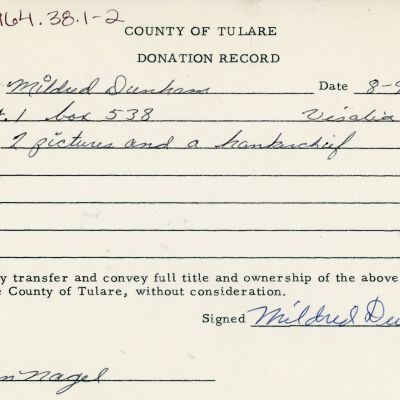 964.38.1-2
COUNTY OF TULARE
DONATION RECORD
Mildred Dunham Date 8-9
. 1 box 538 Visalia
2 pictures and a hankerchief
y transfer and convey full title and ownership of the above
e County of Tulare, without consideration.
Signed Mildred Du
n Nagel